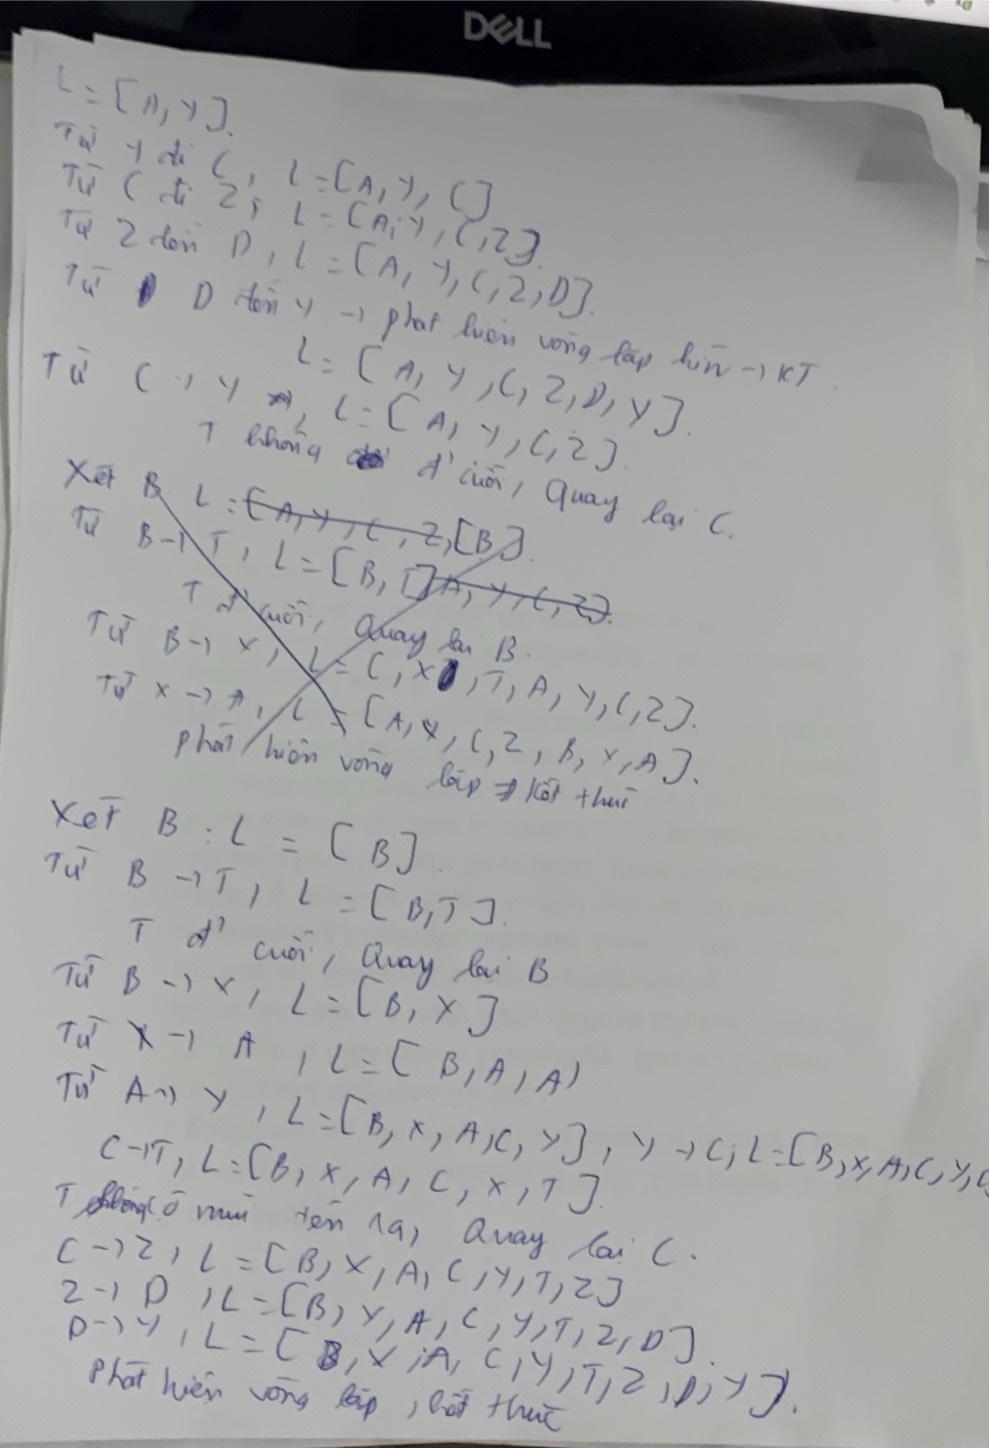 DELL
L = [A, Y].
Từ Y đi C, L = [A, Y, C]
Từ C đi Z, L = [A, Y, C, Z].
Từ Z đến D, L = [A, Y, C, Z, D].
Từ D đến Y → phát hiện vòng lặp → KT.
L = [A, Y, C, Z, D, Y].
Từ C → Y, L = [A, Y, C, Z].
T không đ' cuối, Quay lại C.
Xét B L = [A, Y, C, Z, [B].
Từ B → T, L = [B, T] A, Y, C, Z].
T đ' cuối, Quay lại B.
Từ B → X, L = C, X, T, A, Y, C, Z].
Từ X → A, L = [A, Y, C, Z, B, X, A].
phát hiện vòng lặp → Kết thúc
Xét B : L = [B]
Từ B → T, L = [B, T].
T đ' cuối, Quay lại B
Từ B → X, L = [B, X]
Từ X → A, L = [B, A, A)
Từ A → Y, L = [B, X, A, C, Y], Y → C, L = [B, X, A, C, Y,
C → T, L = [B, X, A, C, X, T].
T mũi tên ra, Quay lại C.
C → Z, L = [B, X, A, C, Y, T, Z]
Z → D, L = [B, Y, A, C, Y, T, Z, D].
D → Y, L = [B, X, A, C, Y, T, Z, D, Y].
phát hiện vòng lặp, kết thúc